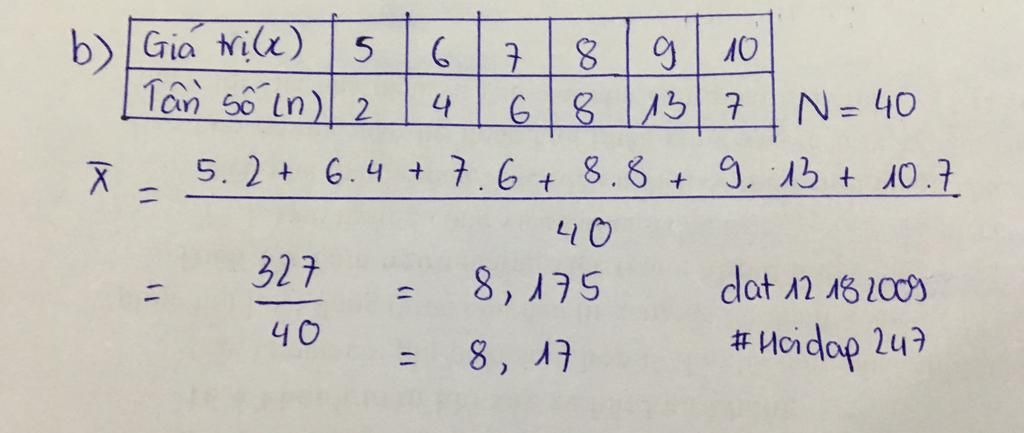 b) Giá trị(x) 5 6 7 8 9 10
Tần số (n) 2 4 6 8 13 7 N = 40
X̄ = 5.2 + 6.4 + 7.6 + 8.8 + 9.13 + 10.7 / 40
= 327/40 = 8,175 dat 12 18 2009
= 8,17 #Hoidap 247